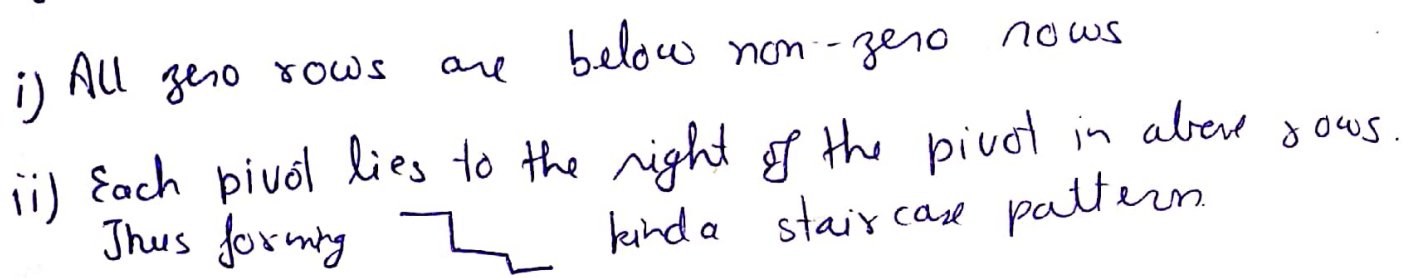 i) All zero rows are below non-zero rows
ii) Each pivot lies to the right of the pivot in above rows.
Thus forming kinda staircase pattern.